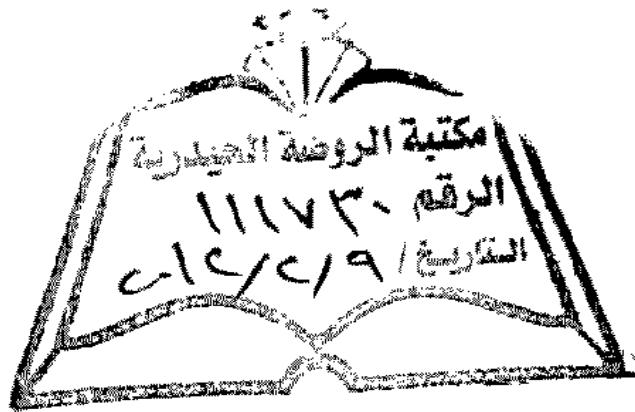 مكتبة الروضة الحيدرية
الرقم ١١١٧٣٠
التاريخ / ٢٠١٢/٢/٩